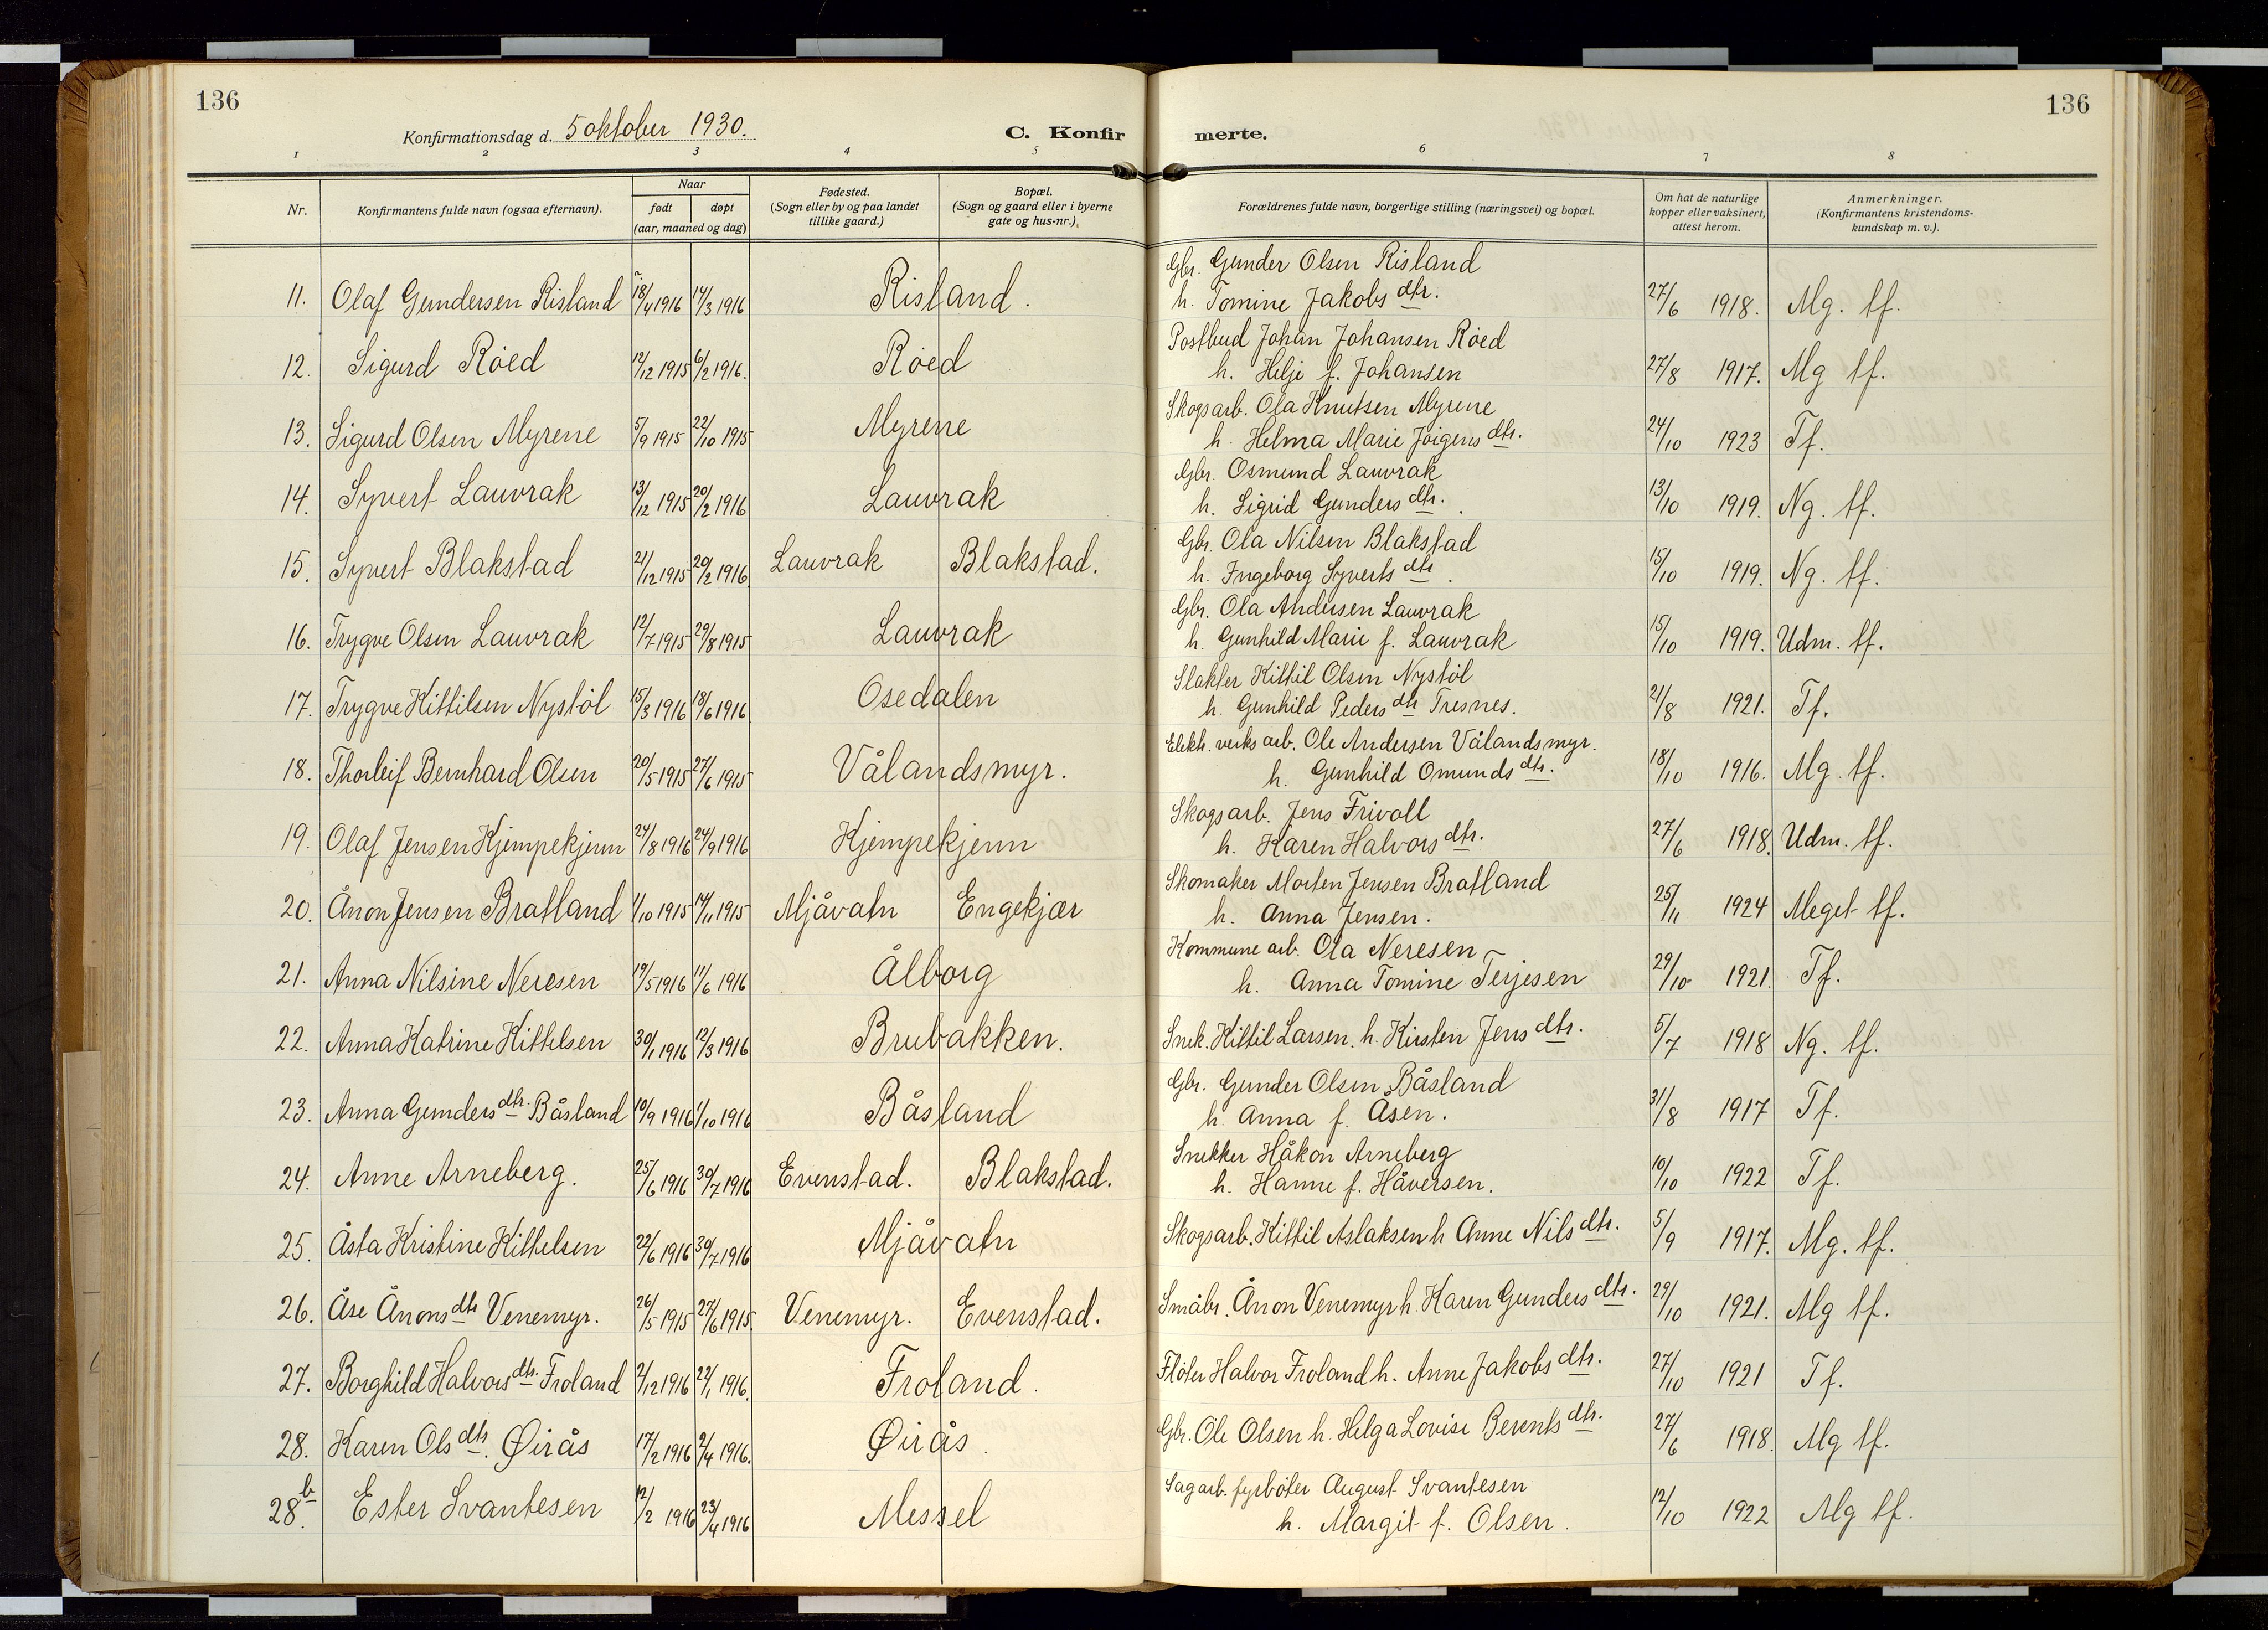 136
136
Konfirmationsdag d. 5 oktober 1930.
C. Konfir merte.
1 2 3 4 5 6 7 8
Nr.
Konfirmantens fulde navn (ogsaa efternavn).
Naar
født døpt
(aar, maaned og dag)
Fødested.
(Sogn eller by og paa landet
tillike gaard.)
Bopæl.
(Sogn og gaard eller i byerne
gate og hus-nr.).
Forældrenes fulde navn, borgerlige stilling (næringsvei) og bopæl.
Om hat de naturlige
kopper eller vaksinert,
attest herom.
Anmerkninger.
(Konfirmantens kristendoms-
kundskap m. v.).
Gbr. Gunder Olsen Risland
11. Olaf Gundersen Risland 18/4 1916 14/3 1916 Risland. h. Tomine Jakobs dtr. 27/6 1918. Mg. tf.
Postbud Johan Johansen Röed
12. Sigurd Röed 12/12 1915 6/2 1916. Röed h. Helje f. Johansen 27/8 1917. Mg tf.
Skogsarb. Ola Knutsen Myrene
13. Sigurd Olsen Myrene 5/9 1915 22/10 1915 Myrene h. Helma Marie Jörgens dtr. 24/10 1923 Tf.
Gbr. Osmund Lauvrak
14. Syvert Lauvrak 13/12 1915 20/2 1916 Lauvrak h. Sigrid Gunders dtr. 13/10 1919. Ng. tf.
Gbr. Ola Nilsen Blakstad
15. Syvert Blakstad 21/12 1915 20/2 1916 Lauvrak Blakstad. h. Ingeborg Syverts dtr. 15/10 1919. Ng. tf.
Gbr. Ola Andersen Lauvrak
16. Trygve Olsen Lauvrak 12/7 1915 29/8 1915 Lauvrak h. Gunhild Marie f. Lauvrak 15/10 1919. Udm. tf.
Slakter Kittil Olsen Nystöl
17. Trygve Kittilsen Nystöl 15/3 1916 18/6 1916 Osedalen h. Gunhild Peders dtr Tresnes. 21/8 1921. Tf.
Elektr. verks arb. Ole Andersen Vålandsmyr.
18. Thorleif Bernhard Olsen 20/5 1915 27/6 1915 Vålandsmyr. h. Gunhild Omunds dtr. 18/10 1916. Mg. tf.
Skogsarb. Jens Frivoll
19. Olaf Jensen Kjempekjenn 24/8 1916 24/9 1916 Kjempekjenn h. Karen Halvors dtr. 27/6 1918. Udm. tf.
Skomaker Morten Jensen Bratland
20. Ånon Jensen Bratland 1/10 1915 14/11 1915 Mjåvatn Engekjær h. Anna Jensen. 25/11 1924 Meget tf.
Kommune arb. Ola Neresen
21. Anna Nilsine Neresen 19/5 1916 11/6 1916 Ålborg h. Anna Tomine Terjesen 29/10 1921. Tf.
22. Anna Katrine Kittelsen 30/1 1916 12/3 1916 Brubakken. Snek. Kittil Larsen. h. Kirsten Jens dtr. 5/7 1918 Ng. tf.
Gbr. Gunder Olsen Båsland
23. Anna Gunders dtr. Båsland 10/9 1916 1/10 1916 Båsland h. Anna f. Åsen. 31/8 1917 Tf.
Snekker Håkon Arneberg
24. Anne Arneberg. 25/6 1916 30/7 1916 Evenstad. Blakstad. h. Hanne f. Håversen. 10/10 1922 Tf.
25. Åsta Kristine Kittelsen 22/6 1916 30/7 1916 Mjåvatn Skogsarb. Kittil Aslaksen h Anne Nils dtr. 5/9 1917. Mg. tf.
26. Åse Ånons dtr Venemyr. 26/5 1915 27/6 1915. Venemyr. Evenstad. Småbr. Ånon Venemyr h. Karen Gunders dtr. 29/10 1921. Mg tf.
27. Borghild Halvors dtr. Froland 2/12 1916 22/1 1916. Froland. Flöter Halvor Froland h. Anne Jakobs dtr. 27/10 1921 Tf.
28. Karen Ols dtr. Øirås 17/2 1916 2/4 1916. Øirås. Gbr. Ole Olsen h. Helga Lovise Berents dtr. 27/6 1918. Mg tf.
Sagarb. fyrböter August Svantesen
28 b. Ester Svantesen 12/2 1916 23/4 1916 Messel h. Margit f. Olsen. 12/10 1922 Mg tf.